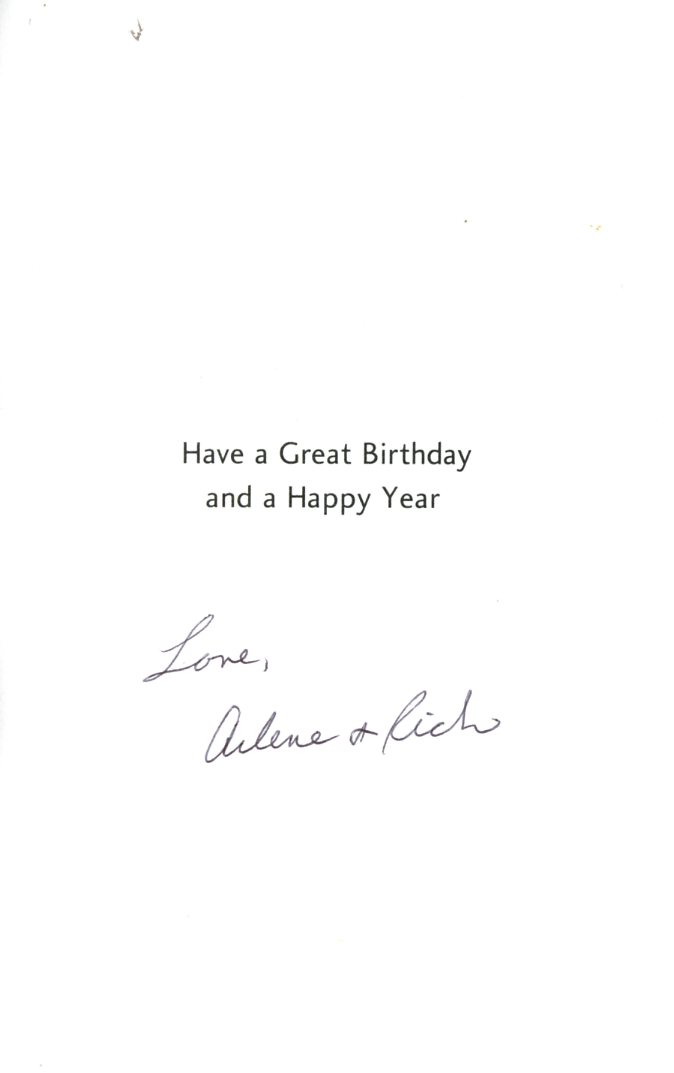 Have a Great Birthday
and a Happy Year
Love,
Arlene + Rich